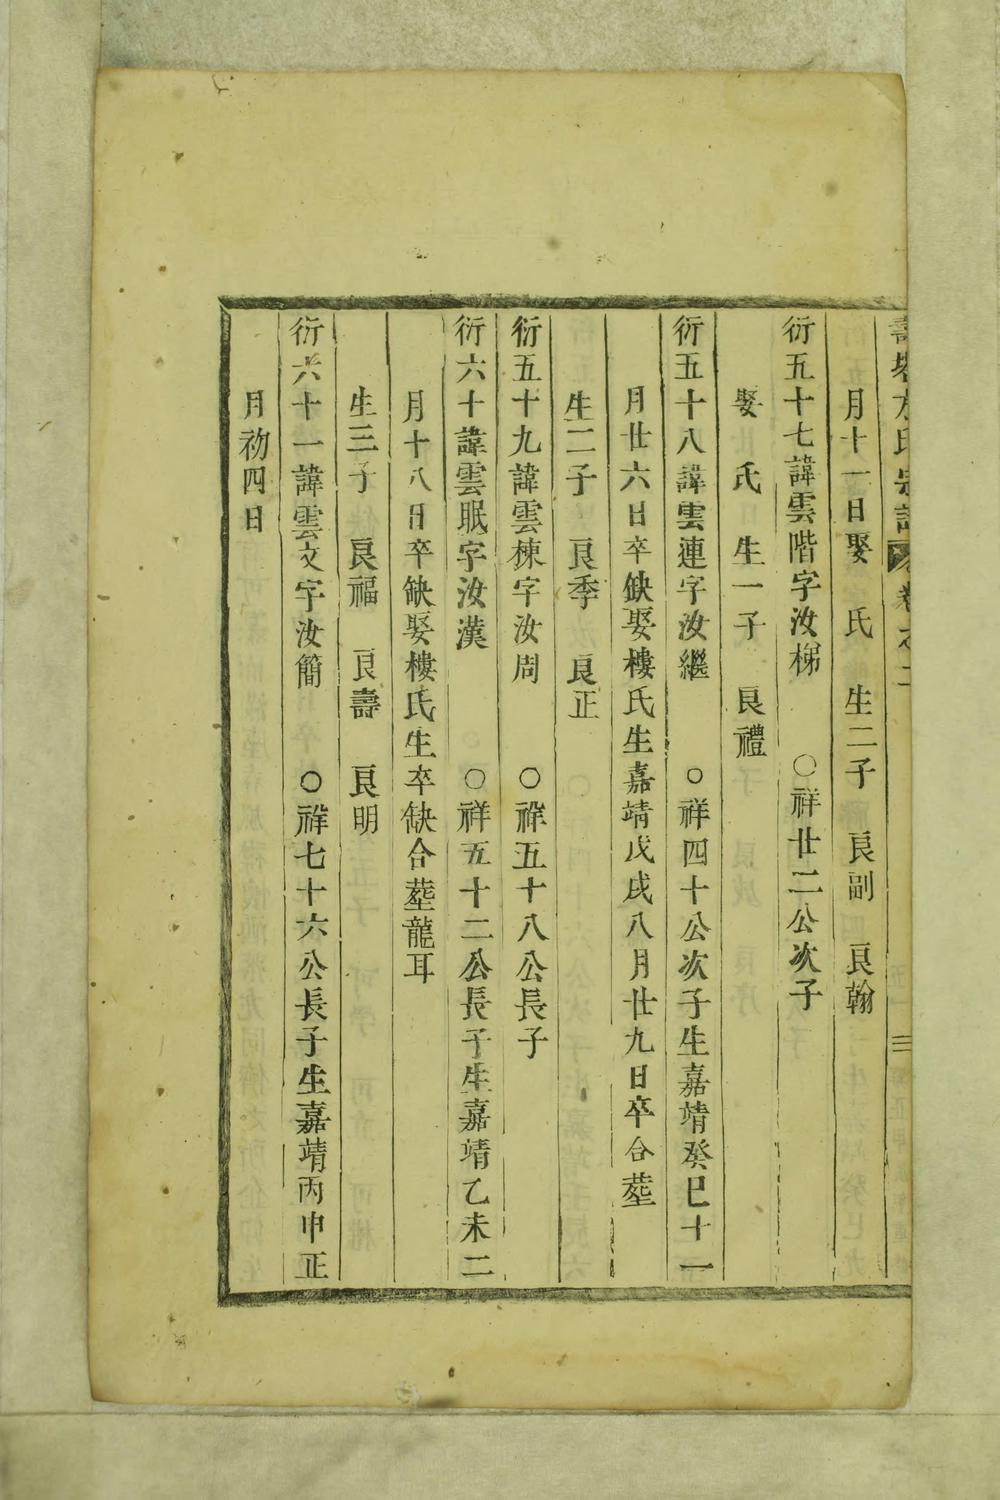 月十一日娶　氏　生二子　良副　良翰
衍五十七諱雲階字汝梯　○祥廿二公次子
娶　氏　生一子　良禮
衍五十八諱雲連字汝繼　○祥四十公次子生嘉靖癸巳十一
月廿六日卒缺娶樓氏生嘉靖戊戌八月廿九日卒合塟
生二子　良季　良正
衍五十九諱雲棟字汝周　○祥五十八公長子
衍六十諱雲眠字汝漢　○祥五十二公長子生嘉靖乙未二
月十八日卒缺娶樓氏生卒缺合塟龍耳
生三子　良福　良壽　良明
衍六十一諱雲文字汝簡　○祥七十六公長子生嘉靖丙申正
月初四日